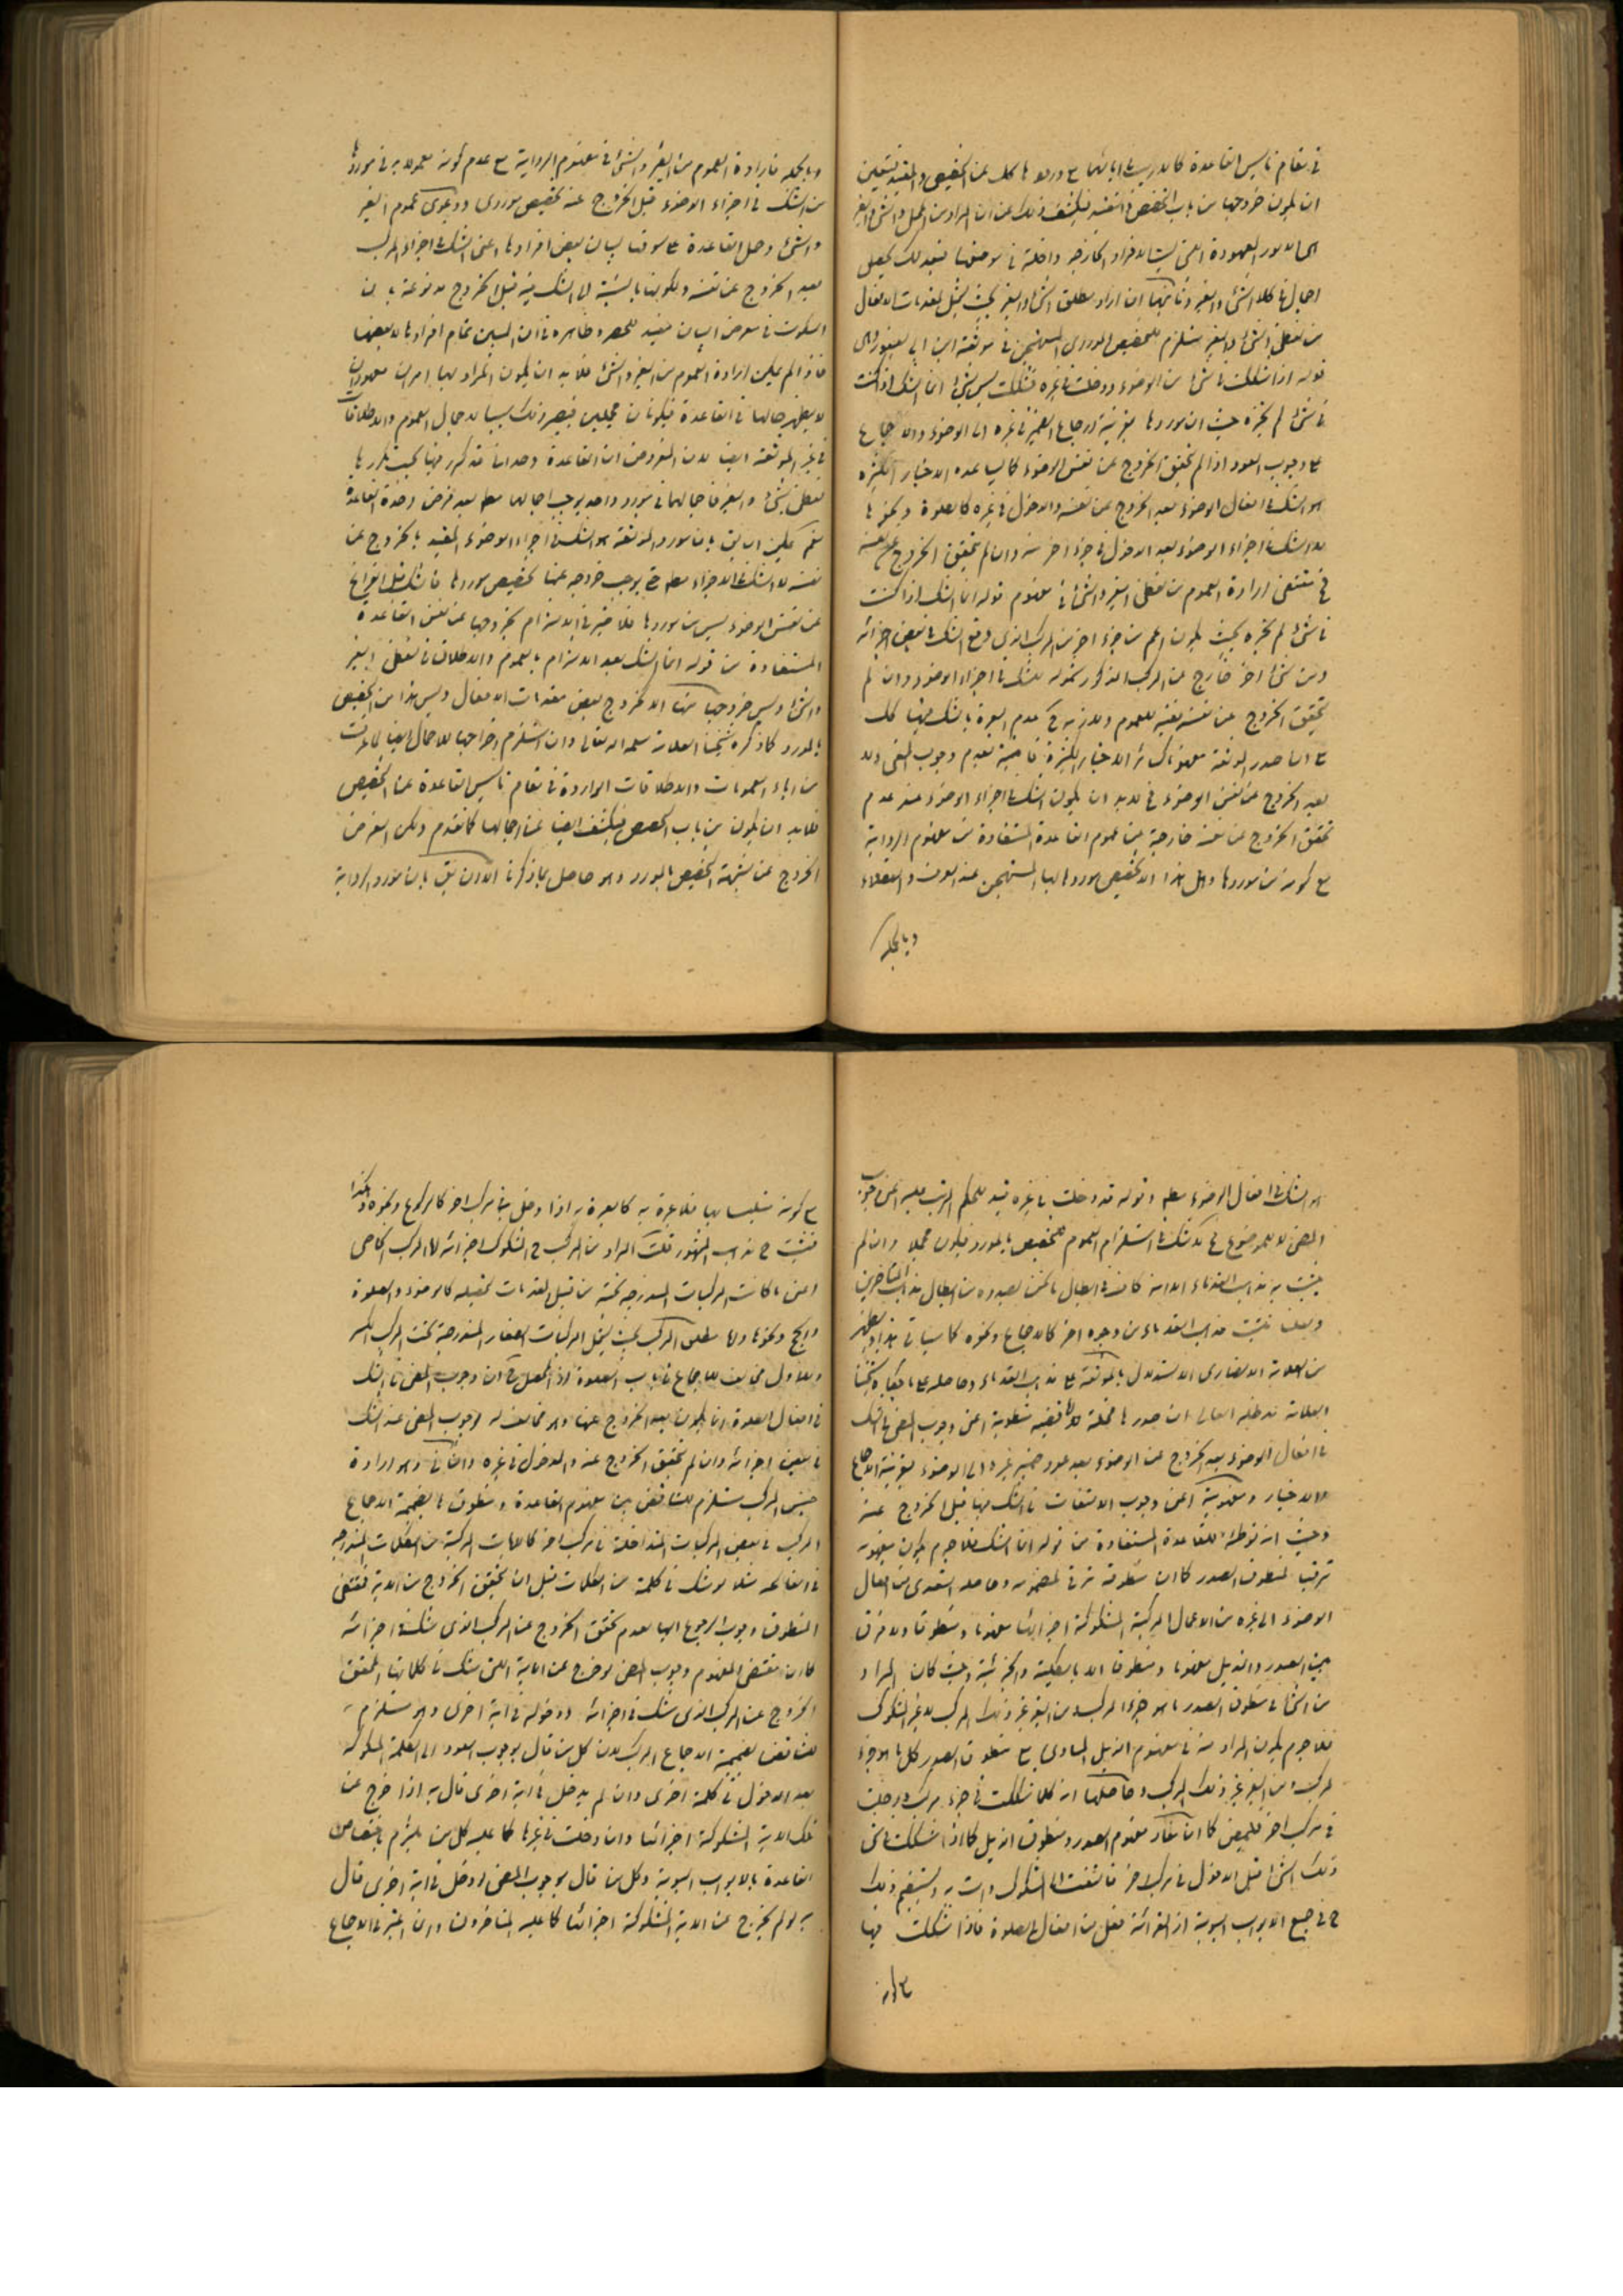 في مقام تاسيس القاعدة كما لا ريب في ابائهما مع ورودها كل عن التخصيص والتقييد فتعين
ان يكون خروجها من باب التخصص والتقيد فيكشف ذلك عن ان المراد من المحل والشئ والغير
الامور المعهودة التى ليست الافراد الخارجه داخلة في موضوعها فبعد ذلك يحصل
اجمال في كلا الشئ والغير وثانيهما ان ارادة مطلق الشئ والغير بحيث يشمل لمقدمات الافعال
من لفظى الشئ والغير مستلزم للتخصيص الموردى المستهجن في موثقة ابن ابي يعفور وهى
قوله اذا شككت في شئ من الوضوء ودخلت في غيره فشكك ليس بشئ انما الشك اذا كنت
في شئ لم تجزه حيث ان موردها بقرينة ارجاع الضمير في غيره الى الوضوء والاجماع
على وجوب العود اذا لم يتحقق الخروج عن نفس الوضوء كما يساعده الاخبار الكثيره
هو الشك في افعال الوضوء بعد الخروج عن نفسه والدخول في غيره كالصلوة ونحوها
لا الشك في اجزاء الوضوء بعد الدخول في جزء اخر منه وان لم يتحقق الخروج عن نفسه
فمقتضى ارادة العموم من لفظى الغير والشئ في مفهوم قوله انما الشك اذا كنت
في شئ لم تجزه بحيث يكون اعم من جزء اخر من المركب الذي وقع الشك في بعض اجزائه
ومن شئ اخر خارج عن المركب المذكور شموله للشك في اجزاء الوضوء وان لم
يتحقق الخروج عن نفسه قضية للعموم ولازمه ح عدم العبرة بالشك فيها كل
على ما صدر الموثقة مفهوما كسائر الاخبار الكثيرة ناصية بعدم وجوب المضى ولا
بعد الخروج عن نفس الوضوء فلا بد ان يكون الشك في اجزاء الوضوء عند عدم
تحقق الخروج عن نفسه خارجة عن عموم القاعدة المستفادة من مفهوم الرواية
مع كونه من موردها وهل هذا الا تخصيص موردها لها المستهجن عند العرف والعقلاء
وبالجمله
وبالجمله فارادة العموم من الغير والشئ في مفهوم الرواية مع عدم كونه معمولا به في موردها
من الشك في اجزاء الوضوء قبل الخروج عنه تخصيص موردى ودعوى عموم الغير
والشئ وحمل القاعدة على سوقها لبيان بعض افرادها اعنى الشك في اجزاء المركب
بعد الخروج عن نفسه وسكوتها بالنسبة الى الشك فيه قبل الخروج مدفوعة بان
السكوت في معرض البيان مفيد للحصر وظاهره في ان المبين تمام افرادها لا بعضها
فاذا لم يمكن ارادة العموم من الغير والشئ فلا بد ان يكون المراد بهما امران معهودان
لا يظهر حالهما في القاعدة فيكونان مجملين فيصير ذلك سببا لاجمال العموم والاطلاقات
في غير الموثقة ايضا لان المفروض ان القاعدة واحدة انما قد كرر فيها بحسب تكررها
لفظى الشئ والغير فاجمالهما في مورد واحد يوجب اجمالهما مطلقا بعد فرض وحدة القاعدة
نعم يمكن ان يق بان مورد الموثقة هو الشك في اجزاء الوضوء المقيد بالخروج عن
نفسه لا الشك في الاجزاء مطلقا حتى يوجب خروجه عنها تخصيص موردها فالشك قبل الفراغ
عن نفس الوضوء ليس من موردها فلا ضير في الالتزام بخروجها عن نفس القاعدة
المستفادة من قوله انما الشك بعد الالتزام بالعموم والاطلاق في لفظى الغير
والشئ وليس خروجها منها الا كخروج بعض مقدمات الافعال وليس هذا من التخصيص
بالمورد كما ذكره شيخنا العلامة سلمه الله تعالى وان استلزم اخراجهما للاجمال ايضا لما عرفت
من اباء العمومات والاطلاقات الواردة في مقام تاسيس القاعدة عن التخصيص
فلا بد ان يكون من باب التخصص فيكشف ايضا عن اجمالها كما تقدم ولكن الغرض
الخروج عن شبهة التخصيص بالمورد وهو حاصل بما ذكرنا الا ان يق بان مورد الرواية
هو الشك في افعال الوضوء مطلقا وقوله قد دخلت في غيره قيد للحكم المرتب عليه اعنى وجوب
المضى لا للموضوع فح لا شك في استلزام العموم للتخصيص بالمورد فيكون مجملا وان لم
يثبت به مذهب القدماء الا انه كاف في ابطال ما نحن بصدده من ابطال مذهب المتاخرين
ولعلنا نثبت مذهب القدماء من وجوه اخر كالاجماع ونحوه كما سياتي هذا ويظهر
من العلامة الانصارى الاستدلال بالموثقة على مذهب القدماء وحاصله على ما حكاه شيخنا
العلامة مد ظله العالى ان صدرها متحمل لقضية منطوقية اعنى وجوب المضى في الشك
في افعال الوضوء بعد الخروج عن الوضوء بعد عود ضمير غيره الى الوضوء بقرينة الاجماع
والاخبار ومفهومية اعنى وجوب الالتفات في الشك فيها قبل الخروج عنه
وحيث انه توطئة للقاعدة المستفادة من قوله انما الشك فلا جرم يكون مفهومه
مرتبا لمنطوق الصدر كما ان منطوقه مرتب لمفهومه وحاصله التعدى من افعال
الوضوء الى غيره من الاعمال المركبة المشكوكة اجزائها مفهوما ومنطوقا ولا فرق
بين الصدر والذيل مفهوما ومنطوقا الا بالكلية والجزئية وحيث كان المراد
من الشئ في منطوق الصدر ما هو جزء المركب ومن الغير غير ذلك المركب لا غير المشكوك
فلا جرم يكون المراد منه في مفهوم الذيل المساوى مع منطوق الصدر كل ما هو جزء
لمركب ومن الغير غير ذلك المركب وحاصلها انه كلما شككت في جزء مركب ودخلت
في مركب اخر فلتمض كما ان مفاد مفهوم الصدر ومنطوق الذيل كلما اذا شككت في
ذلك الشئ قبل الدخول في مركب اخر فالتفت الى المشكوك وات به ويستقيم ذلك
ح في جميع الابواب المبوبة اذ القرائة فعل من افعال الصلوة فاذا شككت فيها
مع كونه
مع كونه متلبسا بها فلا عبرة به كالعبرة به اذا دخل في مركب اخر كالركوع ونحوه وهكذا
فثبت ح مذهب المشهور قلت المراد من المركب ح المشكوك اجزائه اما المركب الخاص
اعنى ما كانت المركبات المندرجه تحته من قبيل المقدمات لتحصيله كالوضوء والصلوة
والحج ونحوها واما مطلق المركب بحيث يشمل المركبات الصغار المندرجة تحت المركب الكبير
والاول مخالف للاجماع في باب الصلوة اذ المحصل ح ان وجوب المضى في الشك
في افعال الصلوة انما يكون بعد الخروج عنها وهو مخالف لوجوب المضى عند الشك
في بعض اجزائه وان لم يتحقق الخروج عنه والدخول في غيره والثانى وهو ارادة
جنس المركب مستلزم للتناقض بين مفهوم القاعدة ومنطوقها بضميمة الاجماع
المركب في بعض المركبات المتداخلة في مركب اخر كالايات المركبة من الكلمات المندرجه
في الفاتحه مثلا لو شك في كلمة من الكلمات قبل ان يتحقق الخروج من الاية فمقتضى
المنطوق وجوب الرجوع اليها لعدم تحقق الخروج عن المركب الذى شك في اجزائه
كما ان مقتضى المفهوم وجوب المضى لو خرج عن الاية التى شك في كلماتها لتحقق
الخروج عن المركب الذى شك في اجزائه ودخوله في اية اخرى وهو مستلزم
للتناقض بضميمة الاجماع المركب لان كل من قال بوجوب العود الى الكلمة المشكوكه
بعد الدخول في كلمة اخرى وان لم يدخل في اية اخرى قال به اذا خرج عن
تلك الاية المشكوكة اجزائها وان دخلت في غيرها كما عليه كل من يلتزم باختصاص
القاعدة بالابواب المبوبة وكل من قال بوجوب المضى لو دخل في اية اخرى قال
به لو لم يخرج عن الاية المشكوكة اجزائها كما عليه المتاخرون وان المعتبر في الاجماع